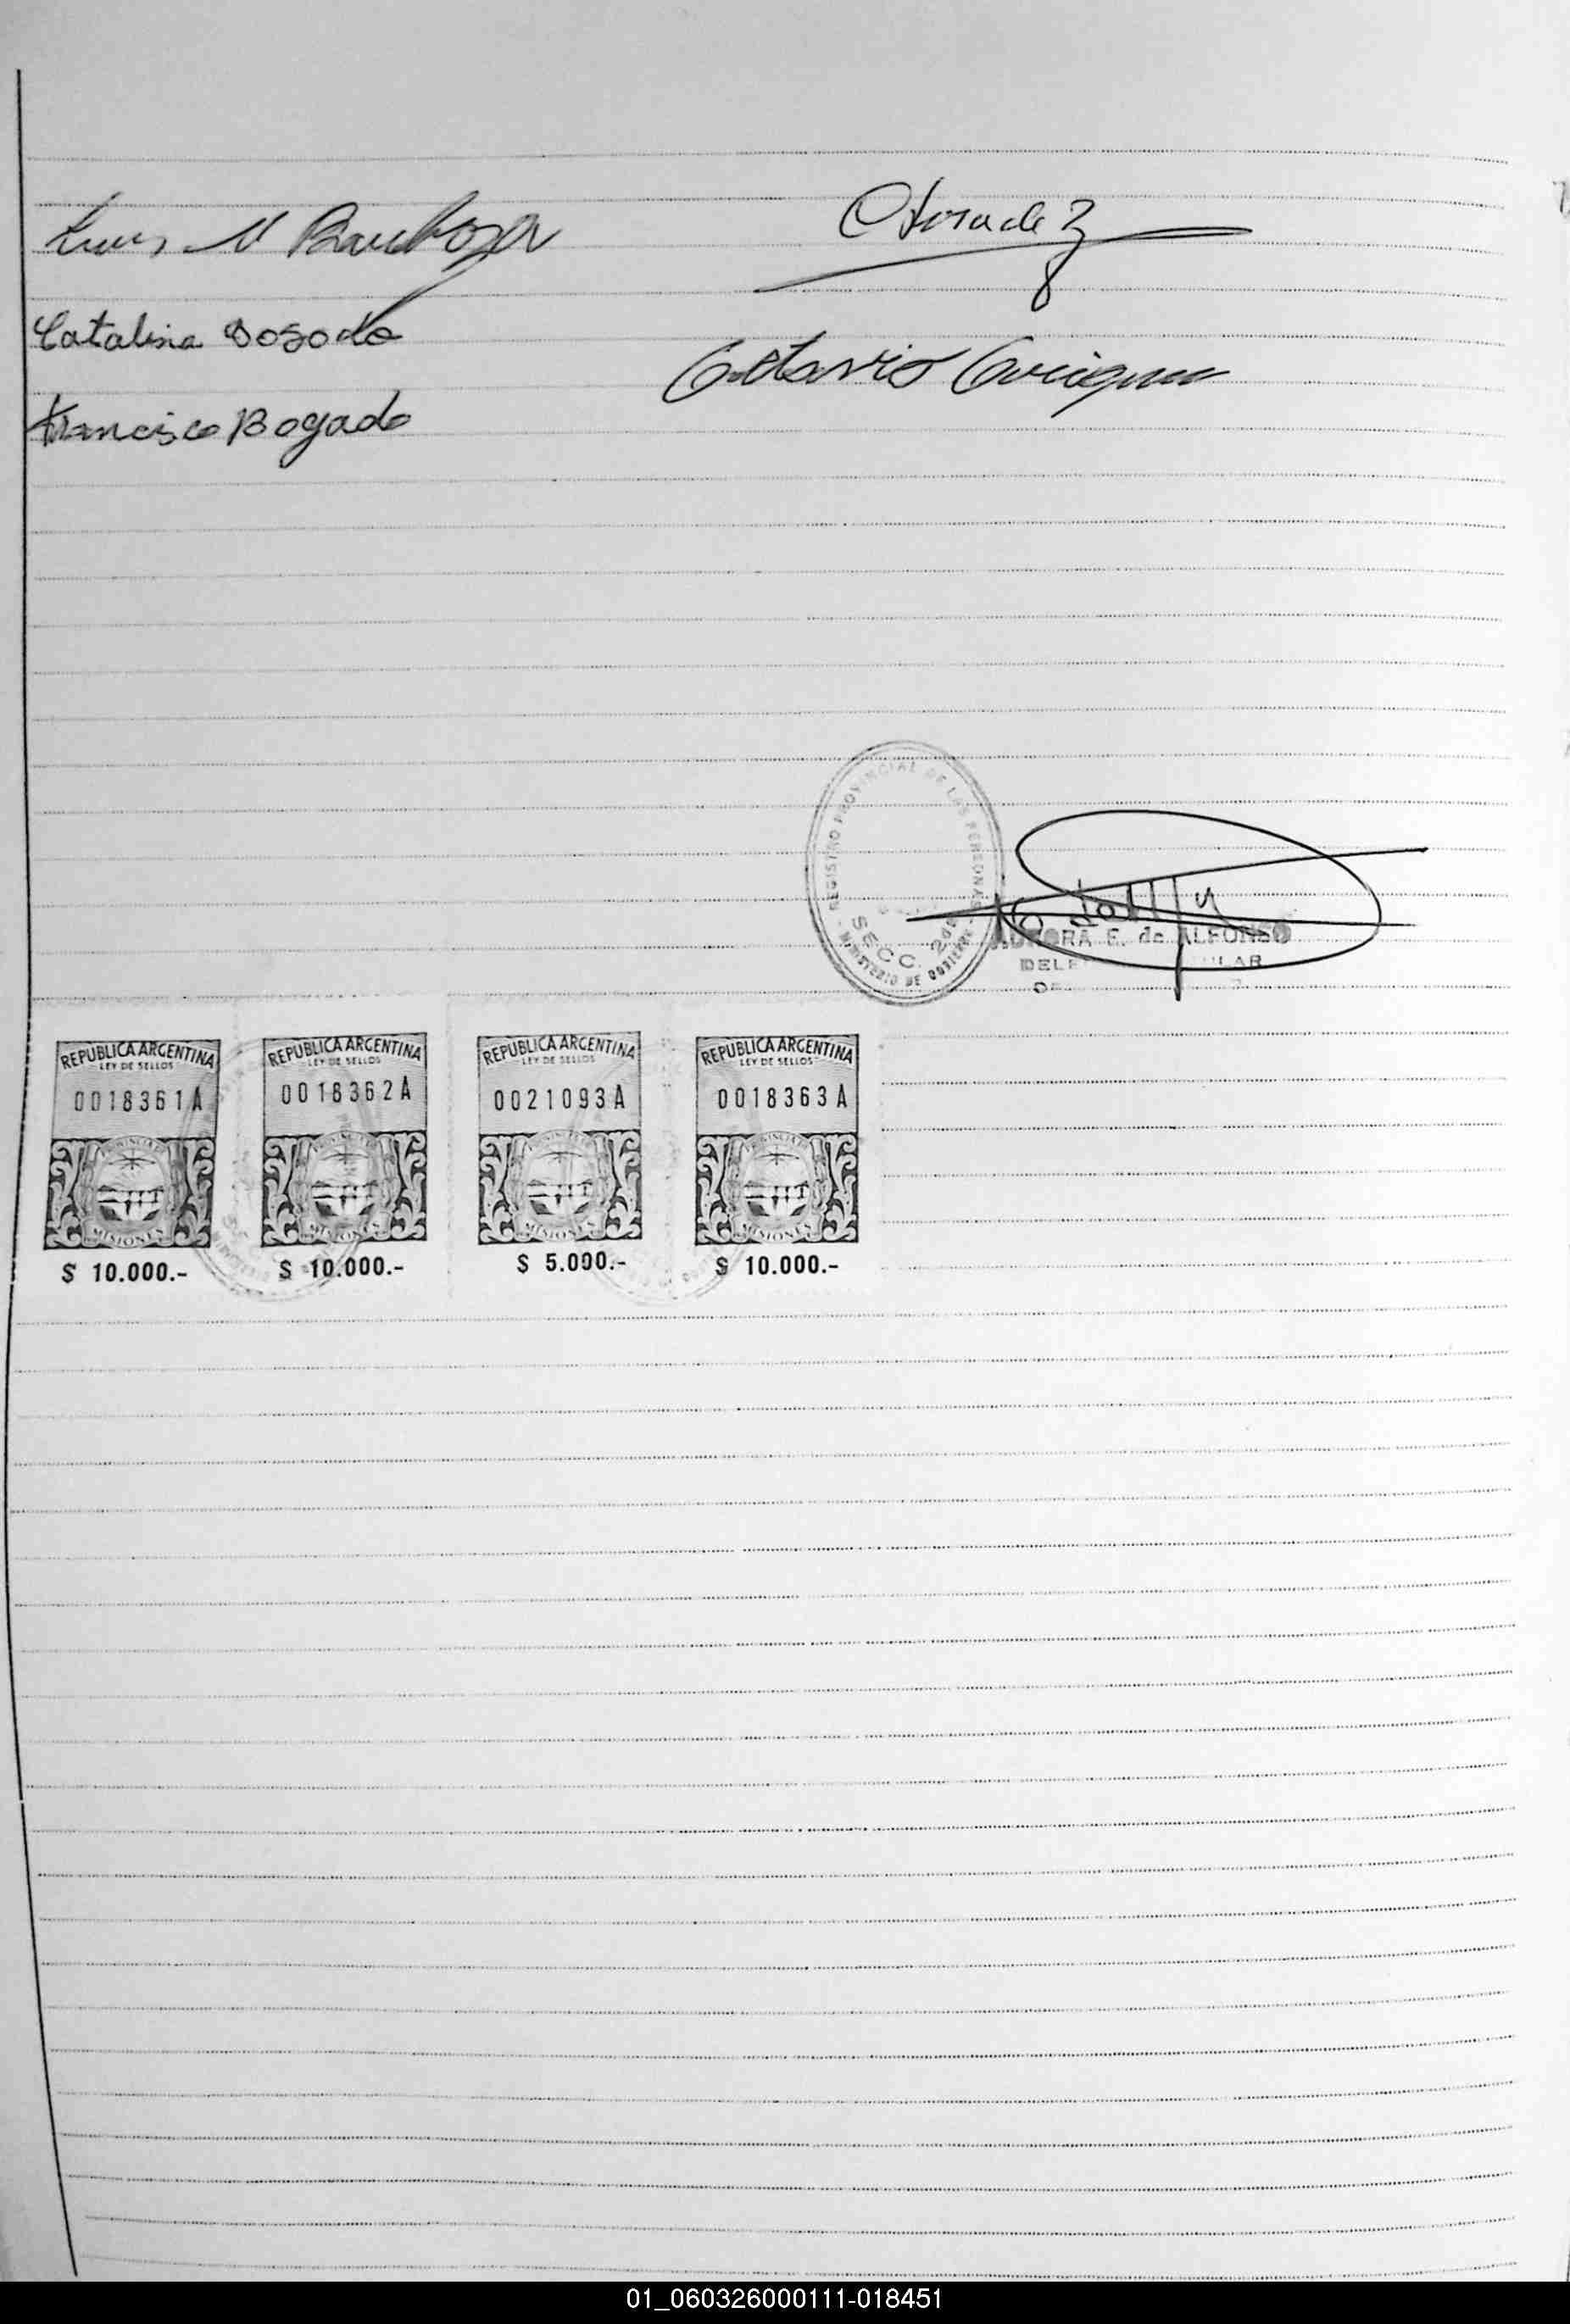 Luis N Barboza
Catalina Bogado
Francisco Bogado
Octavio
REGISTRO PROVINCIAL DE LAS PERSONAS
SECC. 2da
MINISTERIO DE GOBIERNO
AURORA E. de ALFONSO
REPUBLICA ARGENTINA
LEY DE SELLOS
0018361A
MISIONES
$ 10.000.-
REPUBLICA ARGENTINA
LEY DE SELLOS
0018362A
MISIONES
$ 10.000.-
REPUBLICA ARGENTINA
LEY DE SELLOS
0021093A
MISIONES
$ 5.000.-
REPUBLICA ARGENTINA
LEY DE SELLOS
0018363A
MISIONES
$ 10.000.-
01_060326000111-018451